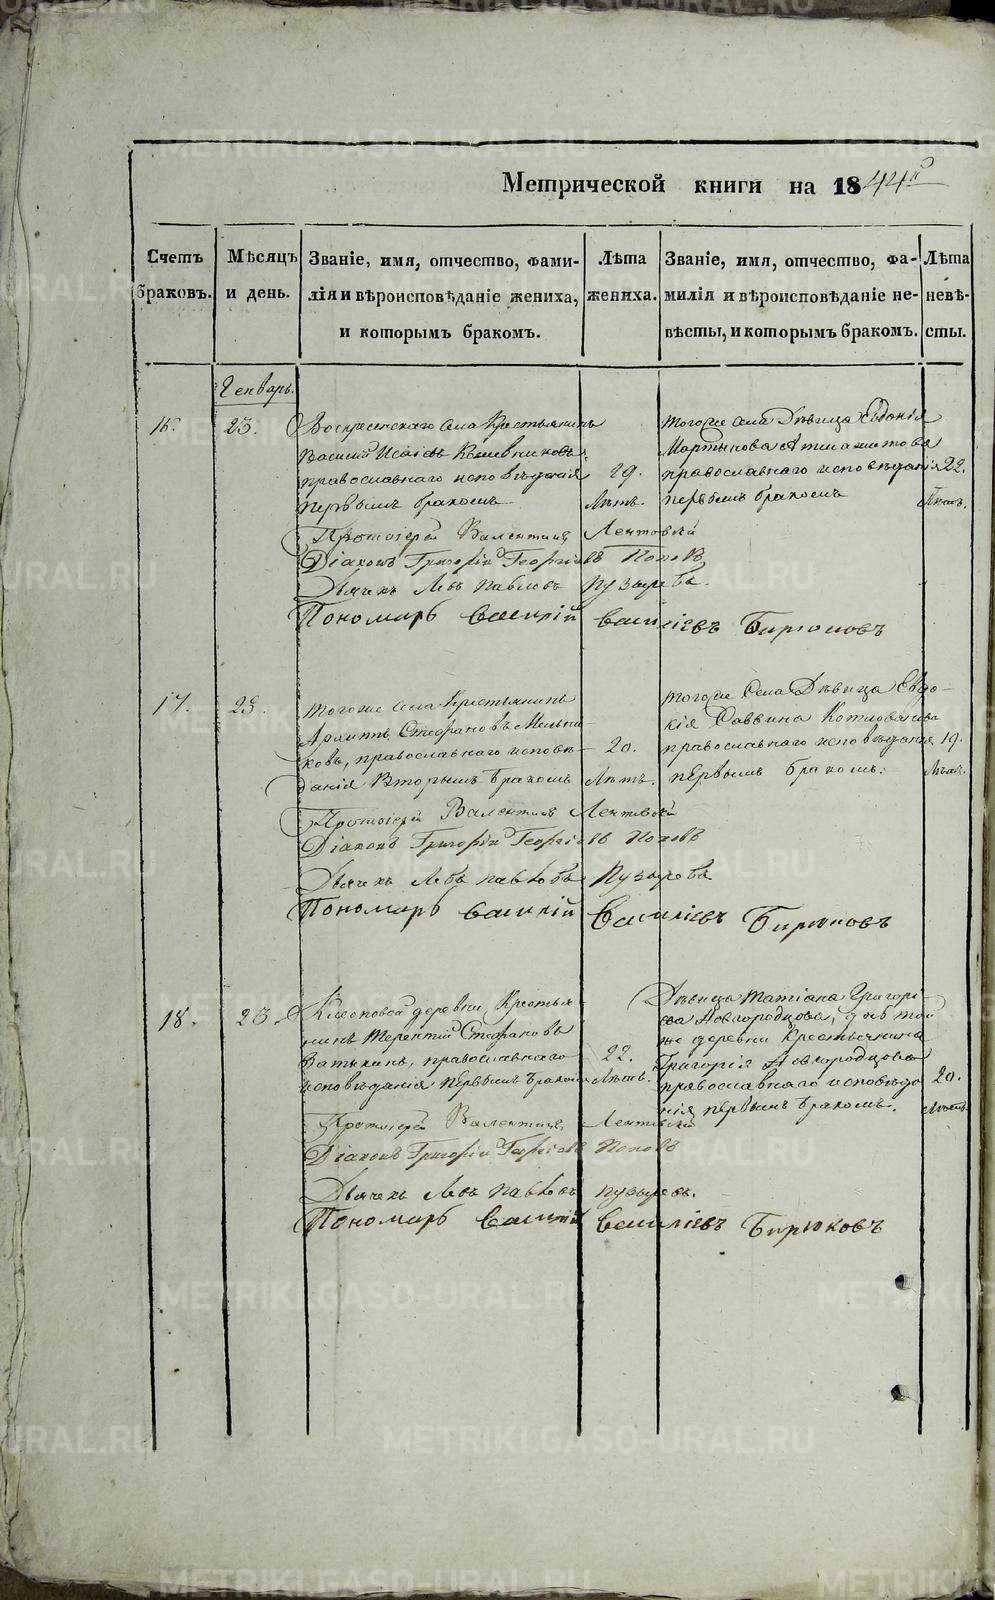 Метрической книги на 1844й
Счетъ браковъ.
Мѣсяцъ и день.
Званіе, имя, отчество, фами-
лія и вѣроисповѣданіе жениха,
и которымъ бракомъ.
Лѣта
жениха.
Званіе, имя, отчество, фа-
милія и вѣроисповѣданіе не-
вѣсты, и которымъ бракомъ.
Лѣта
невѣ-
сты.
Генварь.
16.
23.
Воскресенскаго села Крестьянинъ
Василій Исаіевъ
православнаго исповѣданія
первымъ бракомъ
29.
Лѣтъ.
тогоже села Дѣвица Евдокія
Мартынова
православнаго исповѣданія
первымъ бракомъ
22.
Лѣтъ.
Протоіерей Валентинъ Лентовскій
Діаконъ Григорій Георгіевъ Поповъ
Дьячекъ Левъ Павловъ Пузыревъ.
Пономарь Василій Василіевъ Бирюковъ
17.
23.
тогоже села Крестьянинъ
Стефановъ Мельни-
ковъ, православнаго исповѣ-
данія Вторымъ бракомъ
20.
Лѣтъ.
тогоже Села Дѣвица Евдо-
кія Саввина
православнаго исповѣданія
первымъ бракомъ.
19.
Лѣтъ.
Протоіерей Валентинъ Лентовскій
Діаконъ Григорій Георгіевъ Поповъ
Дьячекъ Левъ Павловъ Пузыревъ
Пономарь Василій Василіевъ Бирюковъ
18.
23.
деревни Крестья-
нинъ Терентій Стефановъ
православнаго
исповѣданія первымъ бракомъ
22.
Лѣтъ.
Дѣвица Татіана Григорі-
ева Новгородцова, дочь той
же деревни Крестьянина
Григорія Новгородцова
православнаго исповѣда-
нія первымъ бракомъ.
20.
Лѣтъ.
Протоіерей Валентинъ Лентовскій
Діаконъ Григорій Георгіевъ Поповъ
Дьячекъ Левъ Павловъ Пузыревъ.
Пономарь Василій Василіевъ Бирюковъ
METRIKI.GASO-URAL.RU